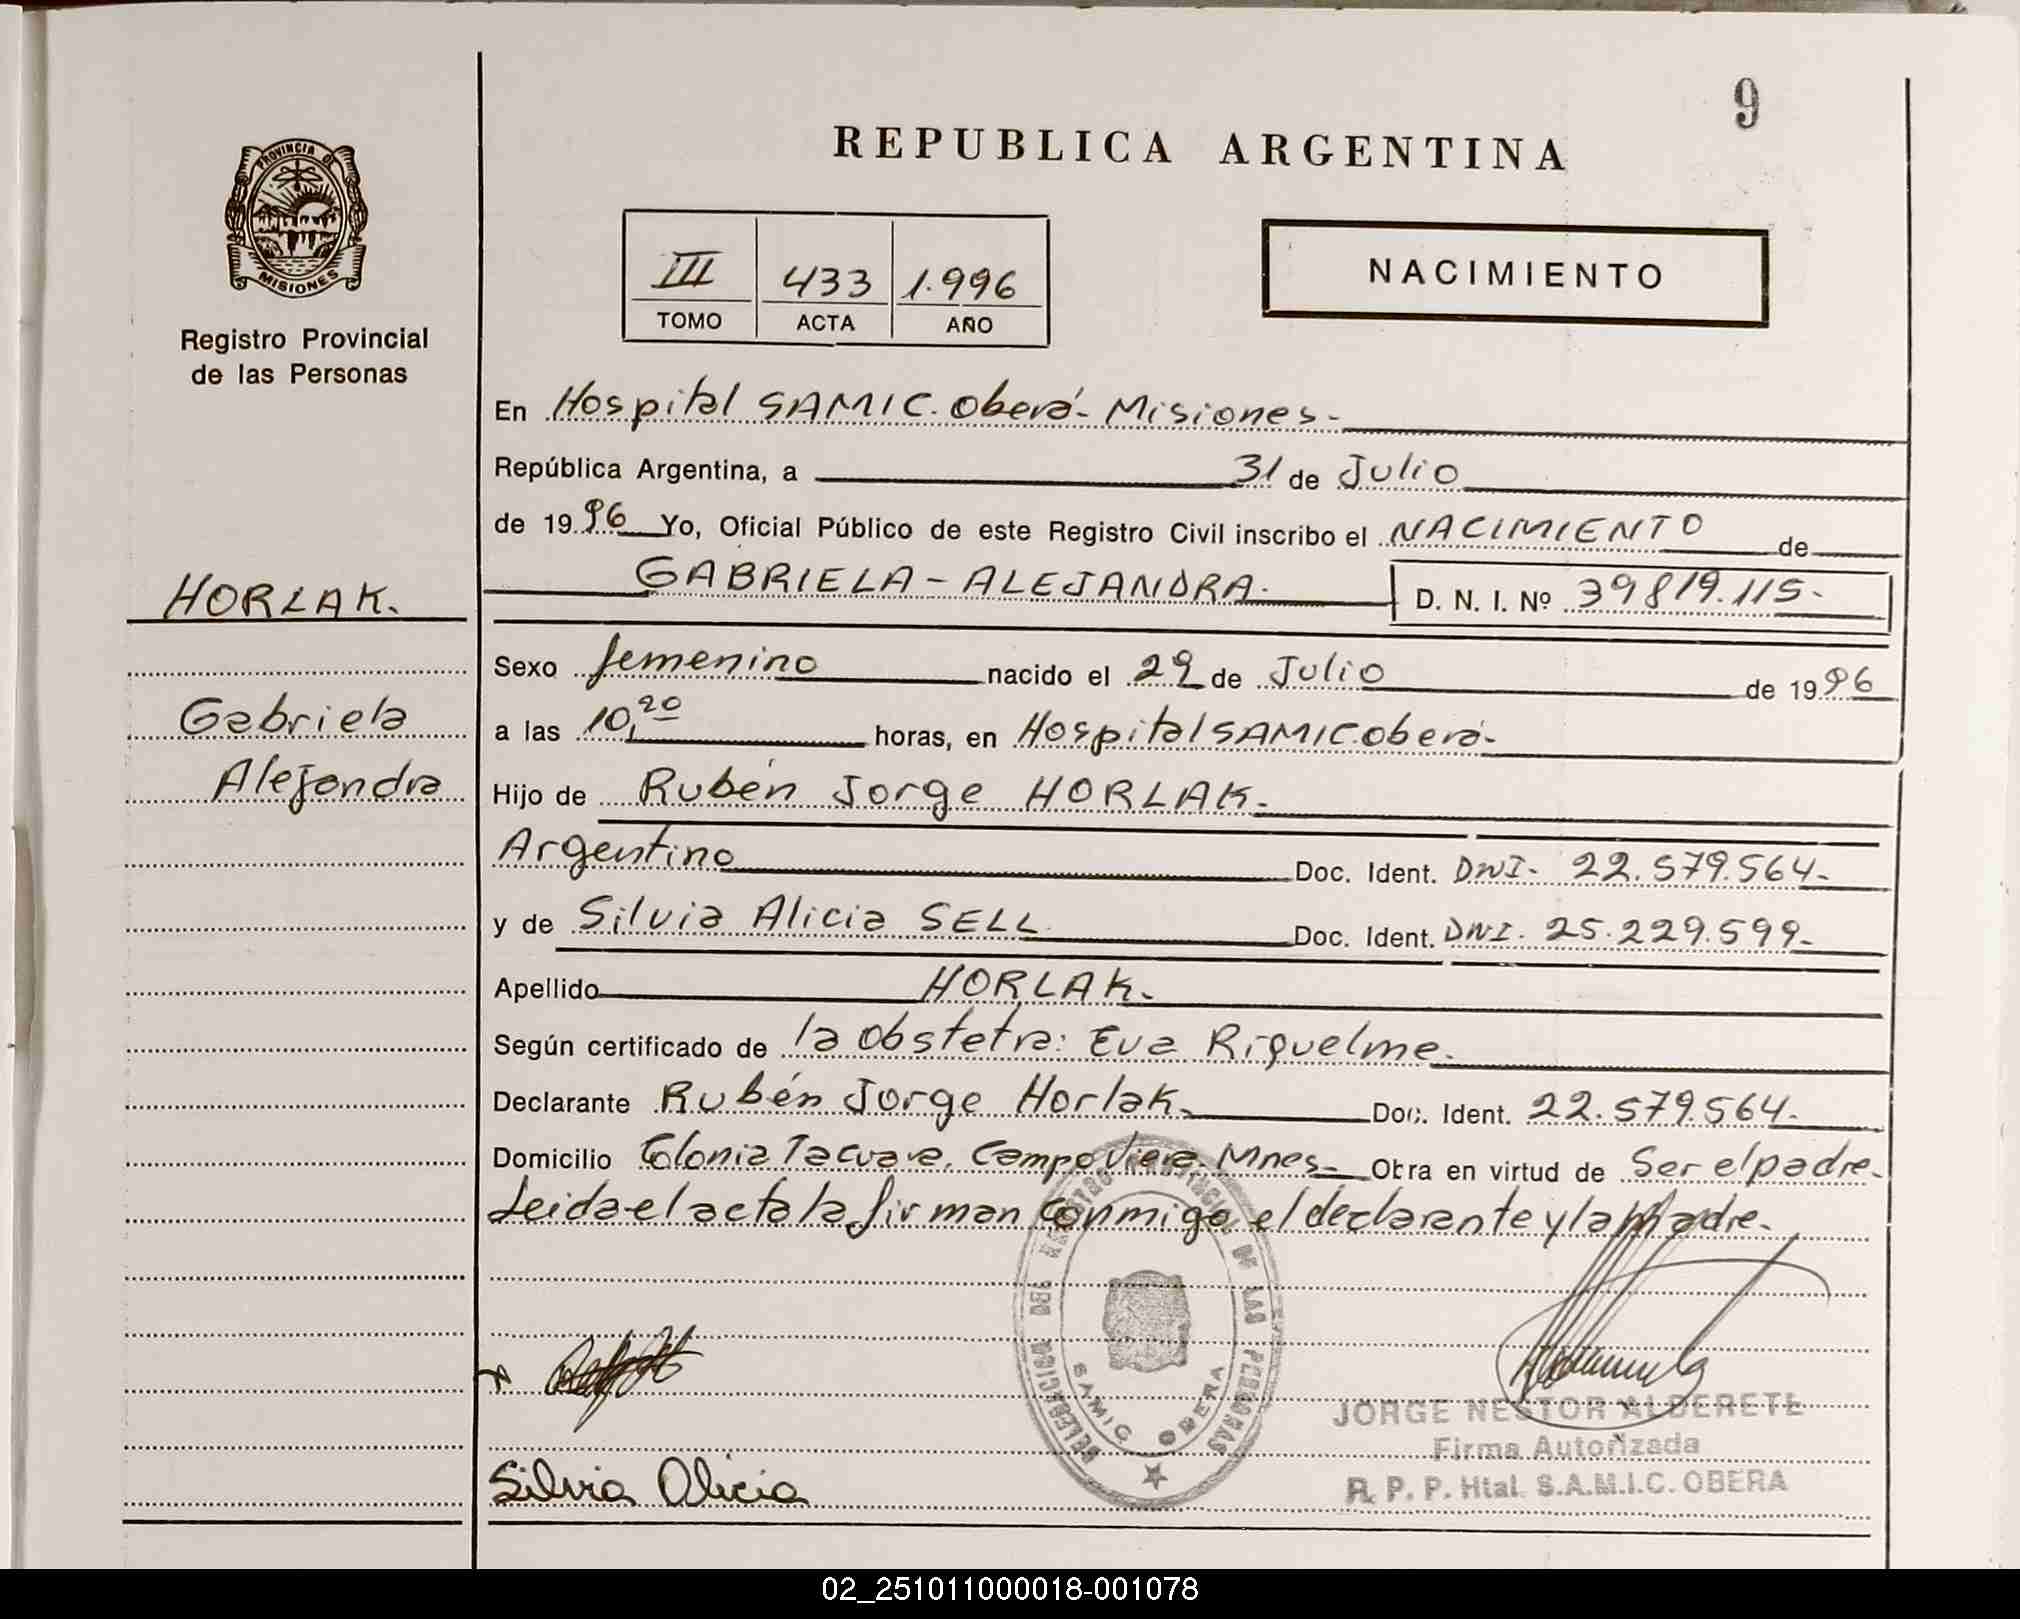 9
REPUBLICA ARGENTINA
PROVINCIA DE
MISIONES
Registro Provincial
de las Personas
III 433 1.996
TOMO ACTA AÑO
NACIMIENTO
En Hospital SAMIC. Oberá - Misiones -
República Argentina, a 31 de Julio
de 19 96 Yo, Oficial Público de este Registro Civil inscribo el NACIMIENTO de
GABRIELA - ALEJANDRA. D. N. I. Nº 39819.115-
HORLAK.
Gabriela
Alejandra
Sexo femenino nacido el 29 de Julio de 19 96
a las 10,20 horas, en Hospital SAMIC oberá-
Hijo de Rubén Jorge HORLAK-
Argentino Doc. Ident. DNI- 22.579.564-
y de Silvia Alicia SELL Doc. Ident. DNI. 25.229.599-
Apellido HORLAK.
Según certificado de la obstetra: Eva Riquelme.
Declarante Rubén Jorge Horlak Doc. Ident. 22.579.564-
Domicilio Colonia Tacuara. Campo Viera. Mnes- Obra en virtud de Ser el padre-
Leida el acta la firman conmigo el declarante y la madre-
DELEGACION DEL REGISTRO PROVINCIAL DE LAS PERSONAS
SAMIC OBERA
JORGE NESTOR ALDERETE
Firma Autorizada
R. P. P. Htal. S.A.M.I.C. OBERA
Silvia Alicia
02_251011000018-001078